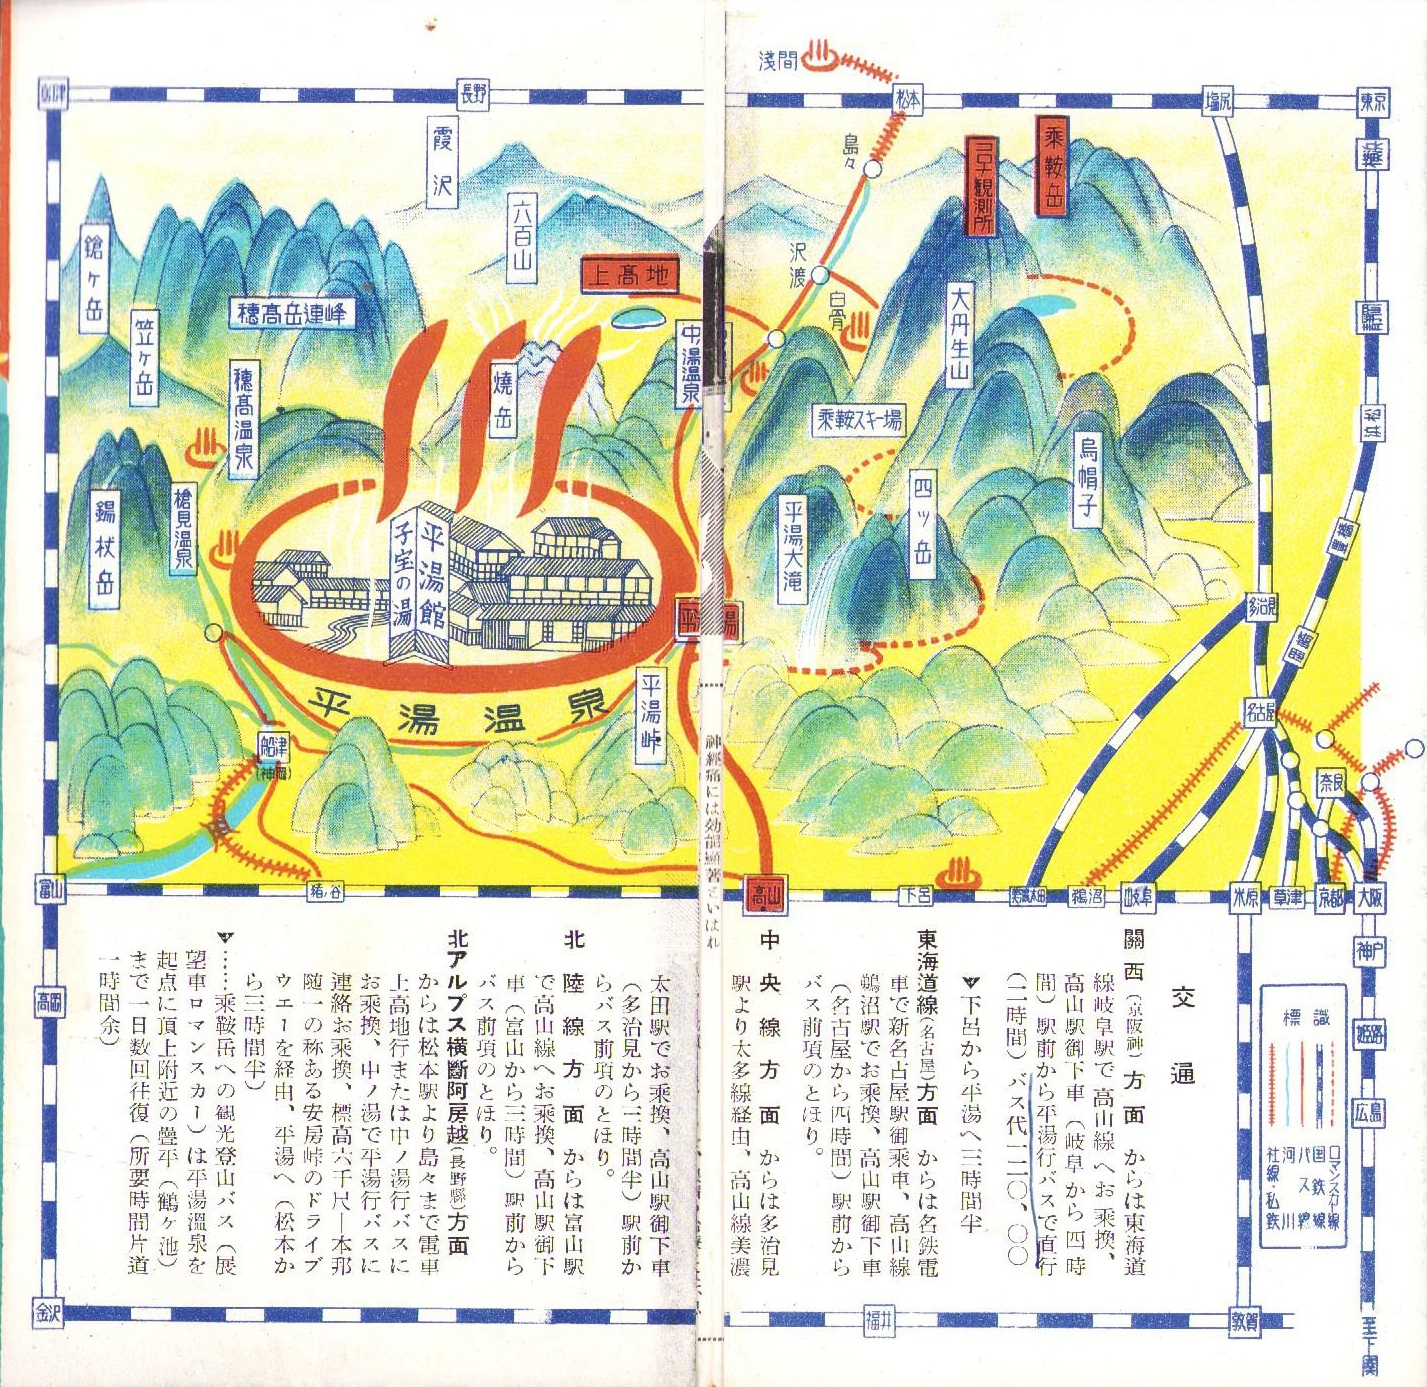 浅間
直江津
長野
松本
塩尻
東京
横浜
静岡
浜松
豊橋
岡崎
多治見
名古屋
奈良
霞沢
六百山
上高地
鎗ヶ岳
笠ヶ岳
穂高岳連峰
穂高温泉
焼岳
中ノ湯温泉
錫杖岳
槍見温泉
平湯館
子宝の湯
平湯温泉
平湯
平湯峠
船津
(神岡)
島々
沢渡
白骨
コロナ観測所
乗鞍岳
大丹生山
乗鞍スキー場
平湯大滝
四ッ岳
烏帽子
富山
猪ノ谷
高山
下呂
美濃太田
鵜沼
岐阜
米原
草津
京都
大阪
神戸
姫路
広島
至下関
高岡
金沢
福井
敦賀
標識
ロマンスカー線
国鉄線
バス線
河川
社線・私鉄
交通
關西(京阪神)方面 からは東海道
線岐阜駅で高山線へお乗換、
高山駅御下車(岐阜から四時
間)駅前から平湯行バスで直行
(二時間)バス代一二〇、〇〇
▼下呂から平湯へ三時間半
東海道線(名古屋)方面 からは名鉄電
車で新名古屋駅御乗車、高山線
鵜沼駅でお乗換、高山駅御下車
(名古屋から四時間)駅前から
バス前項のとほり。
中央線方面 からは多治見
駅より太多線経由、高山線美濃
太田駅でお乗換、高山駅御下車
(多治見から三時間半)駅前か
らバス前項のとほり。
北陸線方面 からは富山駅
で高山線へお乗換、高山駅御下
車(富山から三時間)駅前から
バス前項のとほり。
北アルプス横斷阿房越(長野縣)方面
からは松本駅より島々まで電車
上高地行または中ノ湯行バスに
お乗換、中ノ湯で平湯行バスに
連絡お乗換、標高六千尺―本邦
随一の称ある安房峠のドライブ
ウエーを経由、平湯へ(松本か
ら三時間半)
▼……乗鞍岳への観光登山バス(展
望車ロマンスカー)は平湯溫泉を
起点に頂上附近の疊平(鶴ヶ池)
まで一日数回往復(所要時間片道
一時間余)
神經痛には効能顯著といはれ